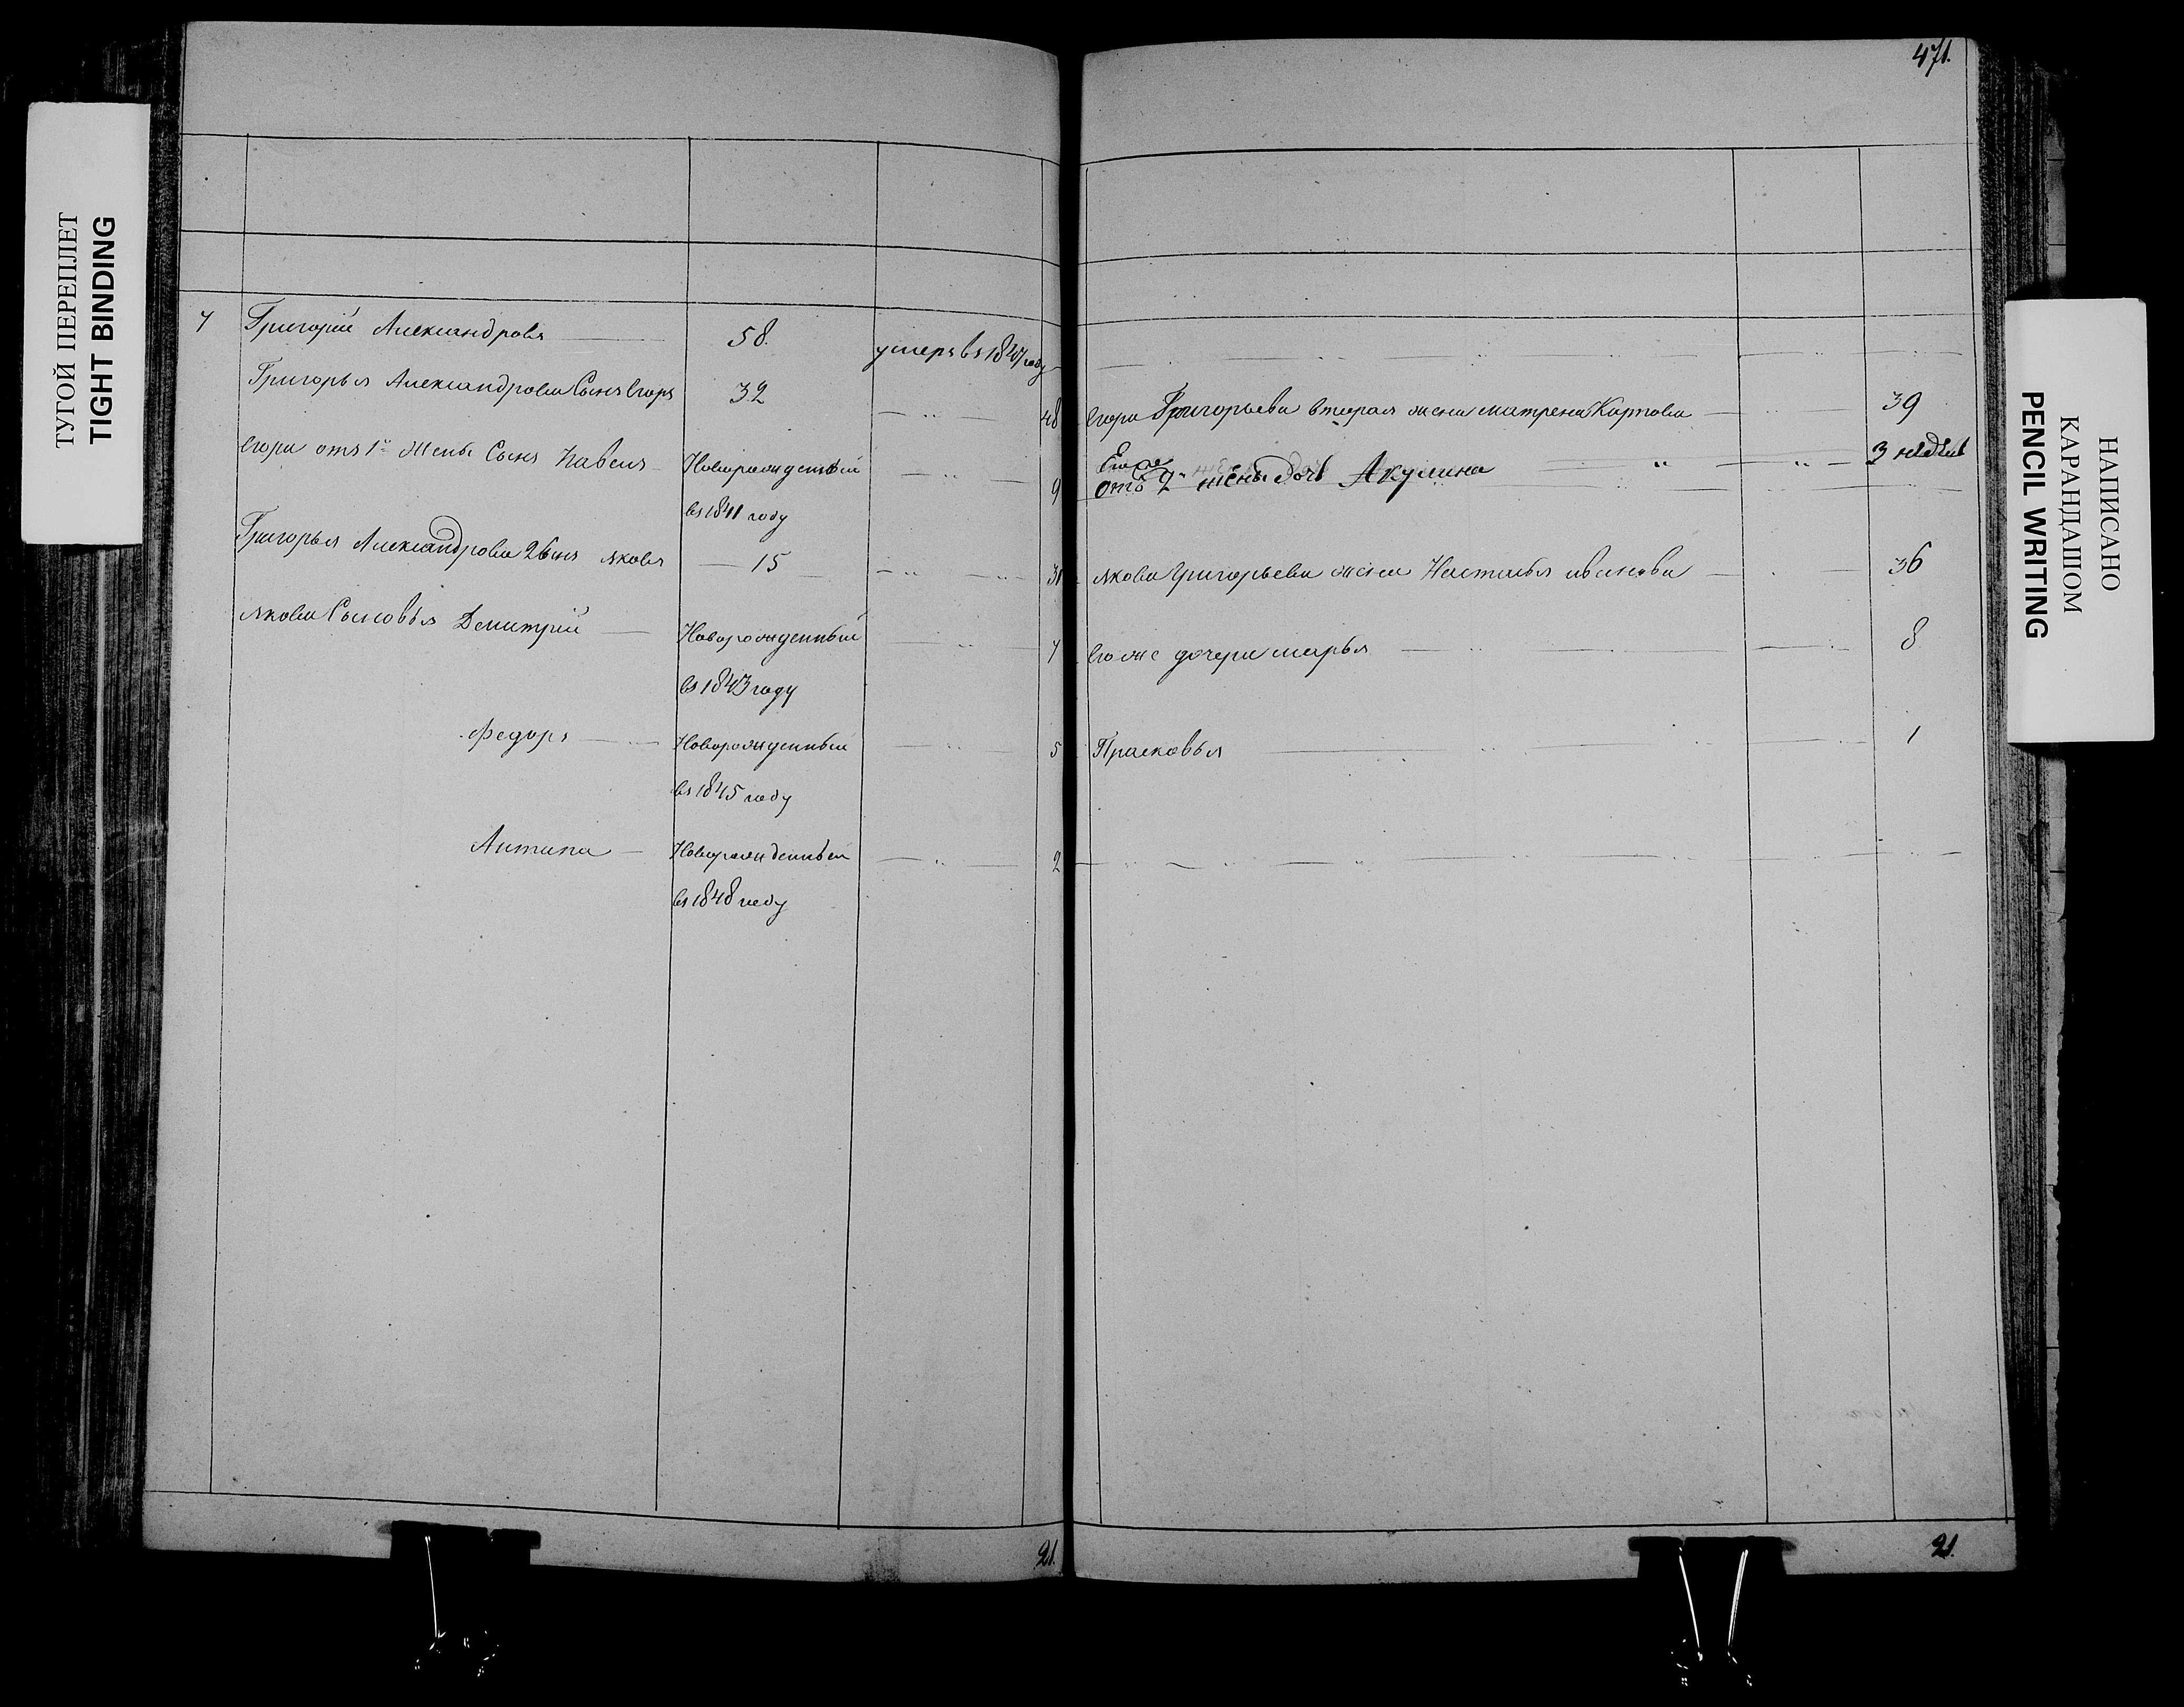 471.
ТУГОЙ ПЕРЕПЛЕТ
TIGHT BINDING
7 Григорій Александровъ 58. умеръ въ 1847 году
Григорья Александрова Сынъ Егоръ 32 48
Егора отъ 1й Жены Сынъ Павелъ Новорожденный 9
въ 1841 году
Григорья Александрова 2 Сынъ Яковъ 15 31
Якова Сыновья Дмитрій Новорожденный 7
въ 1843 году
Федоръ Новорожденный 5
въ 1845 году
Антипа Новорожденный 2
въ 1848 году
21.
Егора Григорьева вторая жена Матрена Карпова 39
Егора 3 недели
отъ 2й жены дочь Акулина
Якова Григорьева жена Настасья Иванова 36
Его же дочери Марья 8
Прасковья 1
21.
НАПИСАНО
КАРАНДАШОМ
PENCIL WRITING